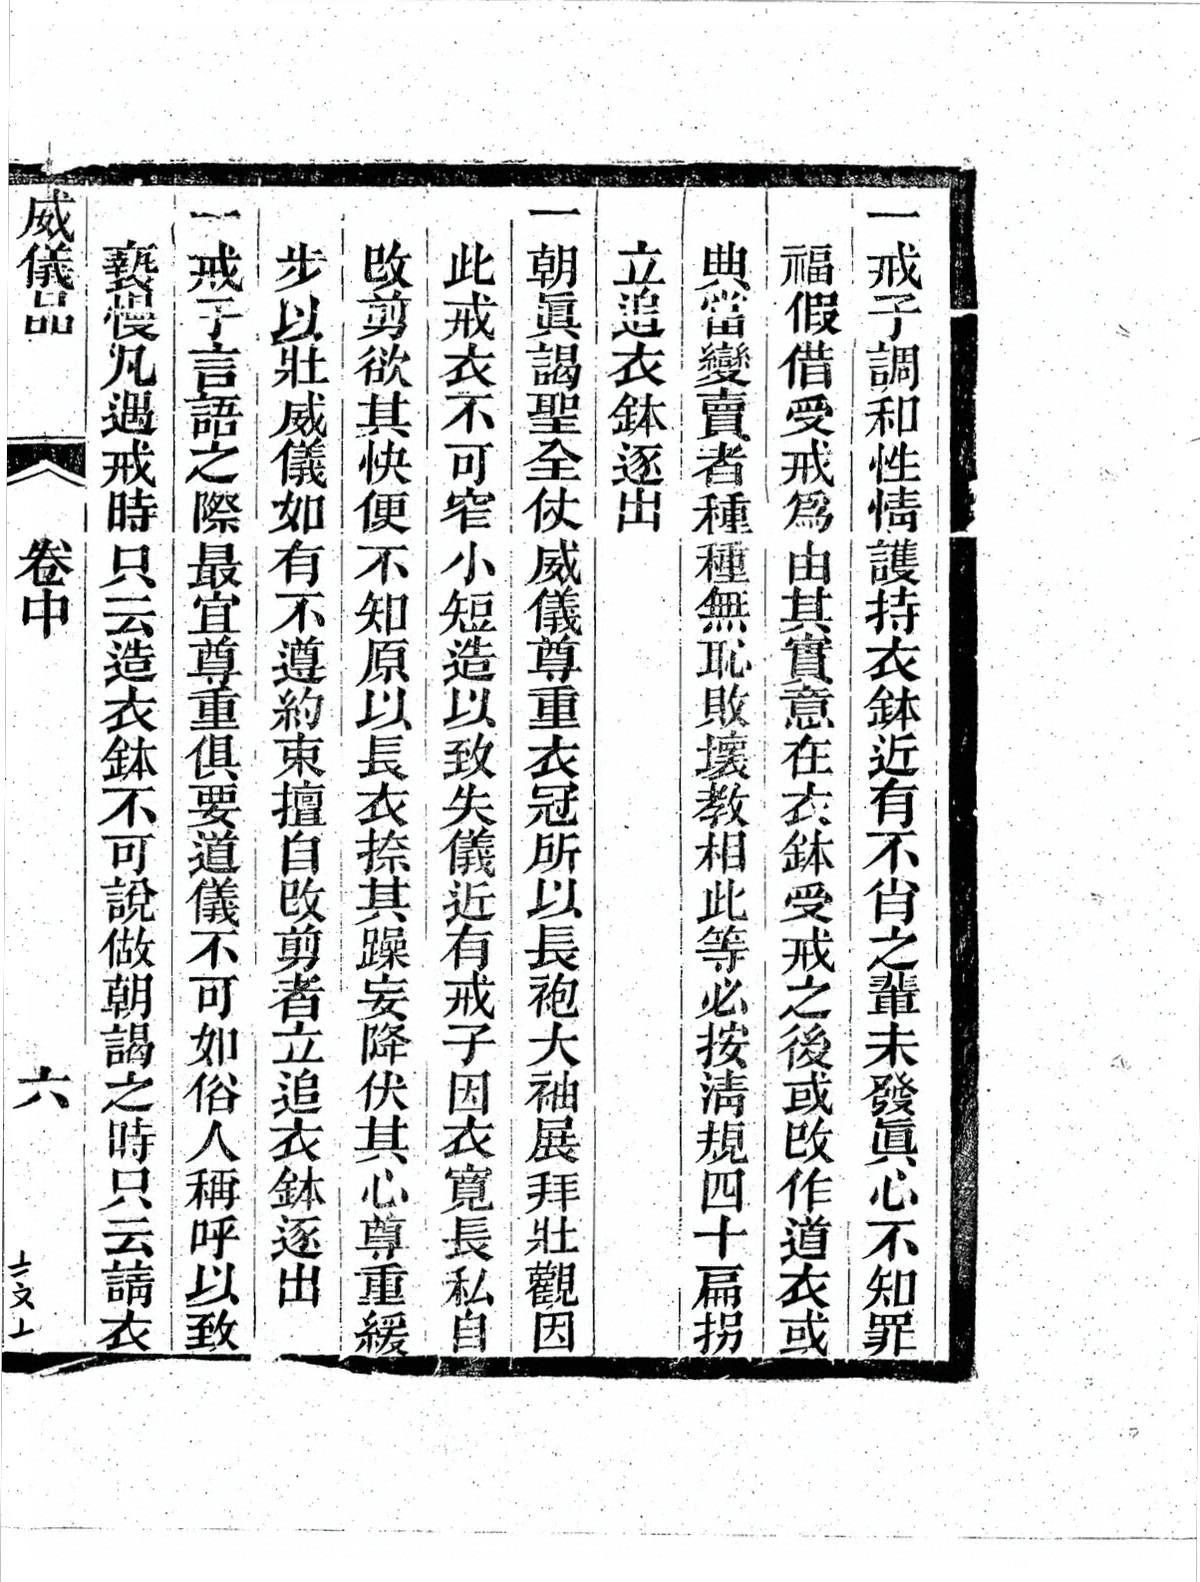 一戒子調和性情護持衣鉢近有不肖之輩未發眞心不知罪
福假借受戒爲由其實意在衣鉢受戒之後或改作道衣或
典當變賣者種種無恥敗壞教相此等必按淸規四十扁拐
立追衣鉢逐出
一朝眞謁聖全仗威儀尊重衣冠所以長袍大袖展拜壯觀因
此戒衣不可窄小短造以致失儀近有戒子因衣寬長私自
改剪欲其快便不知原以長衣捺其躁妄降伏其心尊重緩
步以壯威儀如有不遵約束擅自改剪者立追衣鉢逐出
一戒子言語之際最宜尊重俱要道儀不可如俗人稱呼以致
褻慢凡遇戒時只云造衣鉢不可說做朝謁之時只云請衣
威儀品 卷中 六